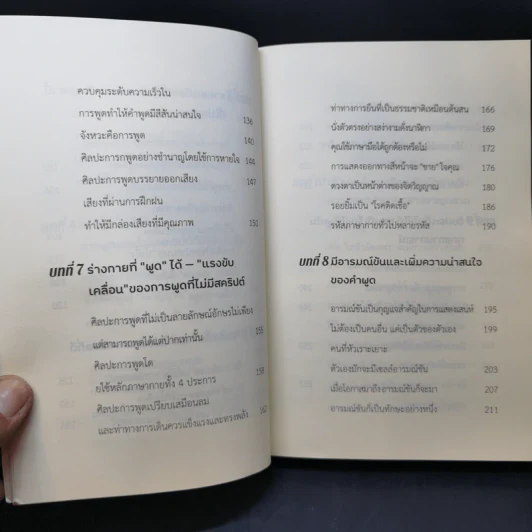 ควบคุมระดับความเร็วใน
การพูดทำให้คำพูดมีสีสันน่าสนใจ 136
จังหวะคือการพูด 140
ศิลปะการกพูดอย่างชำนาญโดยใช้การหายใจ 144
ศิลปะการพูดบรรยายออกเสียง 147
เสียงที่ผ่านการฝึกฝน
ทำให้มีกล่องเสียงที่มีคุณภาพ 150
บทที่ 7 ร่างกายที่ "พูด" ได้ – "แรงขับ
เคลื่อน"ของการพูดที่ไม่มีสคริปต์
ศิลปะการพูดที่ไม่เป็นลายลักษณ์อักษรไม่เพียง
แต่สามารถพูดได้แต่ปากเท่านั้น 155
ศิลปะการพูดโด
ยใช้หลักภาษากายทั้ง 4 ประการ 158
ศิลปะการพูดเปรียบเสมือนลม
และท่าทางการเดินควรแข็งแรงและทรงพลัง 162
ท่าทางการยืนที่เป็นธรรมชาติเหมือนต้นสน 166
นั่งตัวตรงอย่างสง่างามดั่งนาฬิกา 169
คุณใช้ภาษามือได้ถูกต้องหรือไม่ 172
การแสดงออกทางสีหน้าจะ "ขาย" ใจคุณ 176
ดวงตาเป็นหน้าต่างของจิตวิญญาณ 180
รอยยิ้มเป็น "โรคติดเชื้อ" 186
รหัสภาษากายทั่วไปหลายรหัส 190
บทที่ 8 มีอารมณ์ขันและเพิ่มความน่าสนใจ
ของคำพูด
อารมณ์ขันเป็นกุญแจสำคัญในการแสดงเสน่ห์ 195
ไม่ต้องเป็นคนอื่น แต่เป็นตัวของตัวเอง 199
คนที่หัวเราะเยาะ
ตัวเองมักจะมีเซลล์อารมณ์ขัน 203
เมื่อโอกาสมาถึง อารมณ์ขันก็จะมา 207
อารมณ์ขันก็เป็นทักษะอย่างหนึ่ง 211